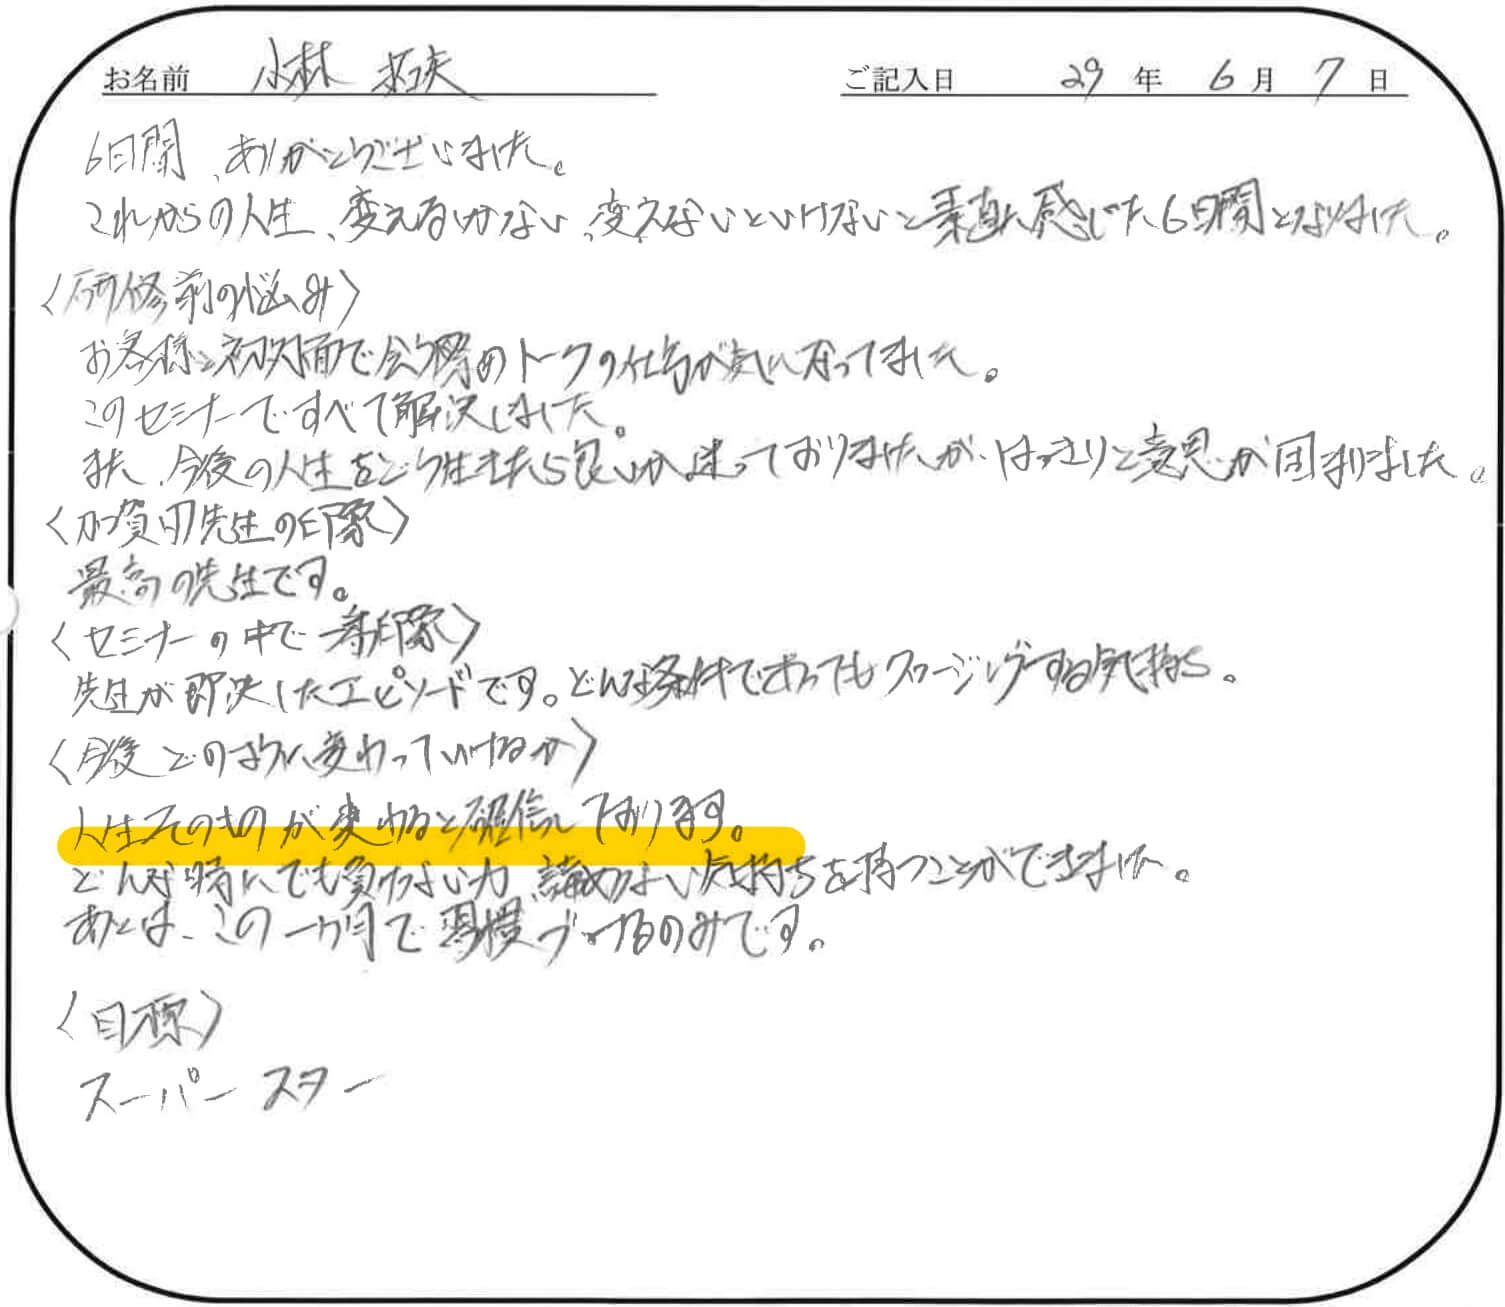 お名前 小林 拓矢 ご記入日 29年6月7日
6日間、ありがとうございました。
これからの人生、変えるしかない、変えないといけないと素直に感じた6日間となりました。
〈研修前の悩み〉
お客様と初対面で会う際のトークの仕方が気になってました。
このセミナーですべて解決しました。
また、今後の人生をどう生きたら良いか迷っておりましたが、はっきりと意思が固まりました。
〈加賀田先生の印象〉
最高の先生です。
〈セミナーの中で一番印象〉
先生が即決したエピソードです。どんな条件であってもクロージングする気持ち。
〈今後どのように変わっていけるか〉
人生そのものが変わると確信しております。
どんな時にでも負けない力、諦めない気持ちを持つことができました。
あとは、この一ヶ月で習慣づけるのみです。
〈目標〉
スーパースター